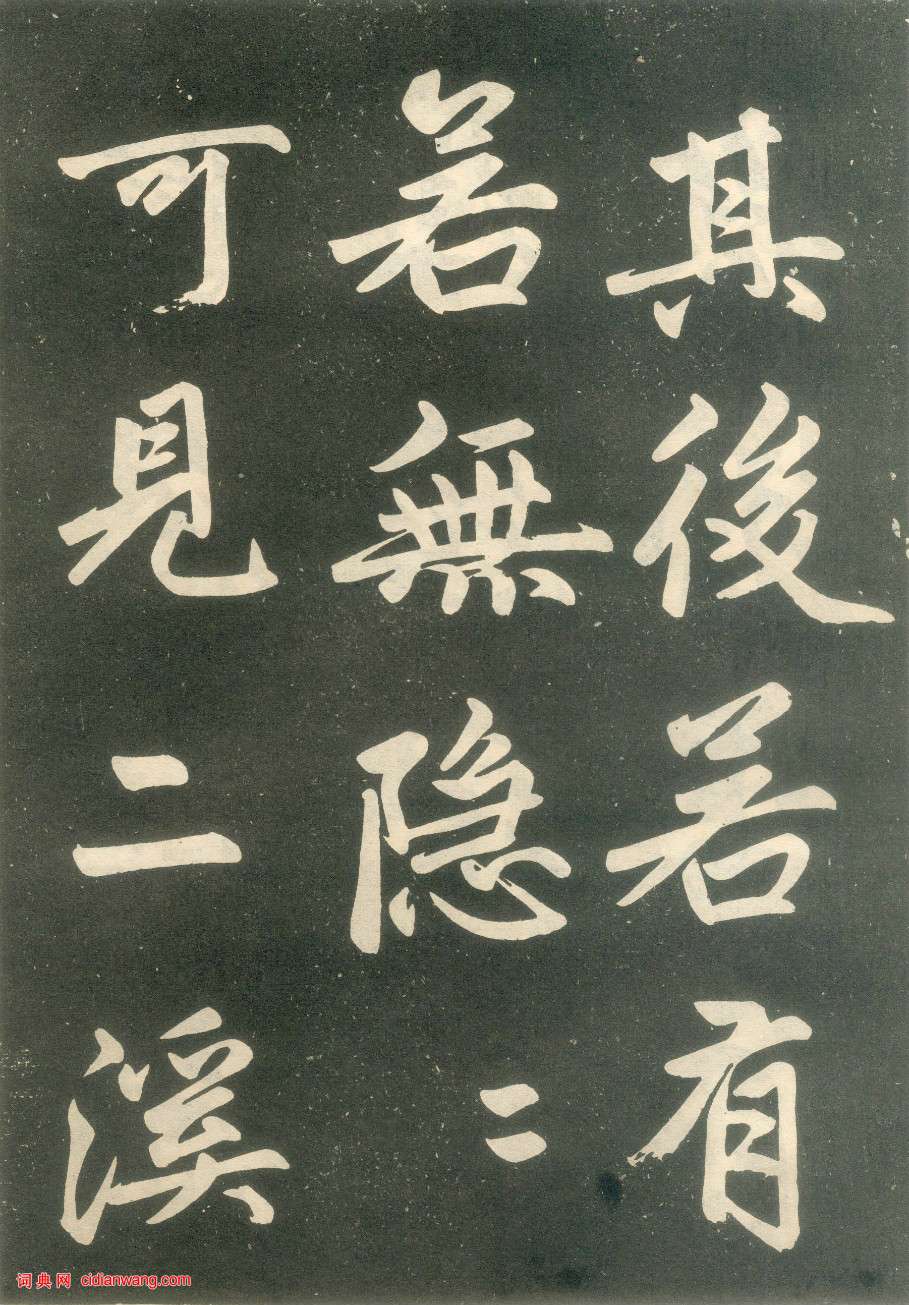 其後若有
若無隐〻
可見二溪
词典网 cidianwang.com